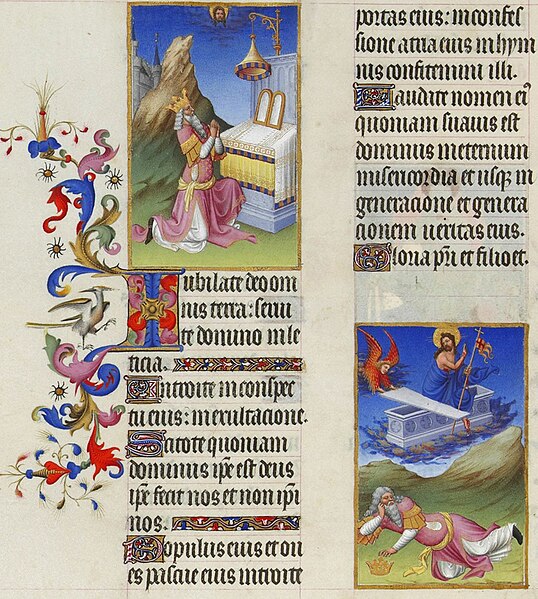 Iubilate deo om
nis terra: serui
te domino in le
ticia.
Introite in conspec
tu eius: in exultacione.
Scitote quoniam
dominus ip̄e est deus
ip̄e fecit nos et non ip̄i
nos.
Populus eius et ou
es pascue eius introite
portas eius: in confes
sione atria eius in hym
nis confitemini illi.
Laudate nomen eiꝰ
quoniam suauis est
dominus in eternum
misericordia et usqꝫ in
generacione et genera
cionem ueritas eius.
Gloria pr̄i et filio et.